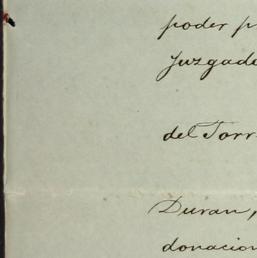 poder p
Juzgado
del Torr
Duran,
donacion